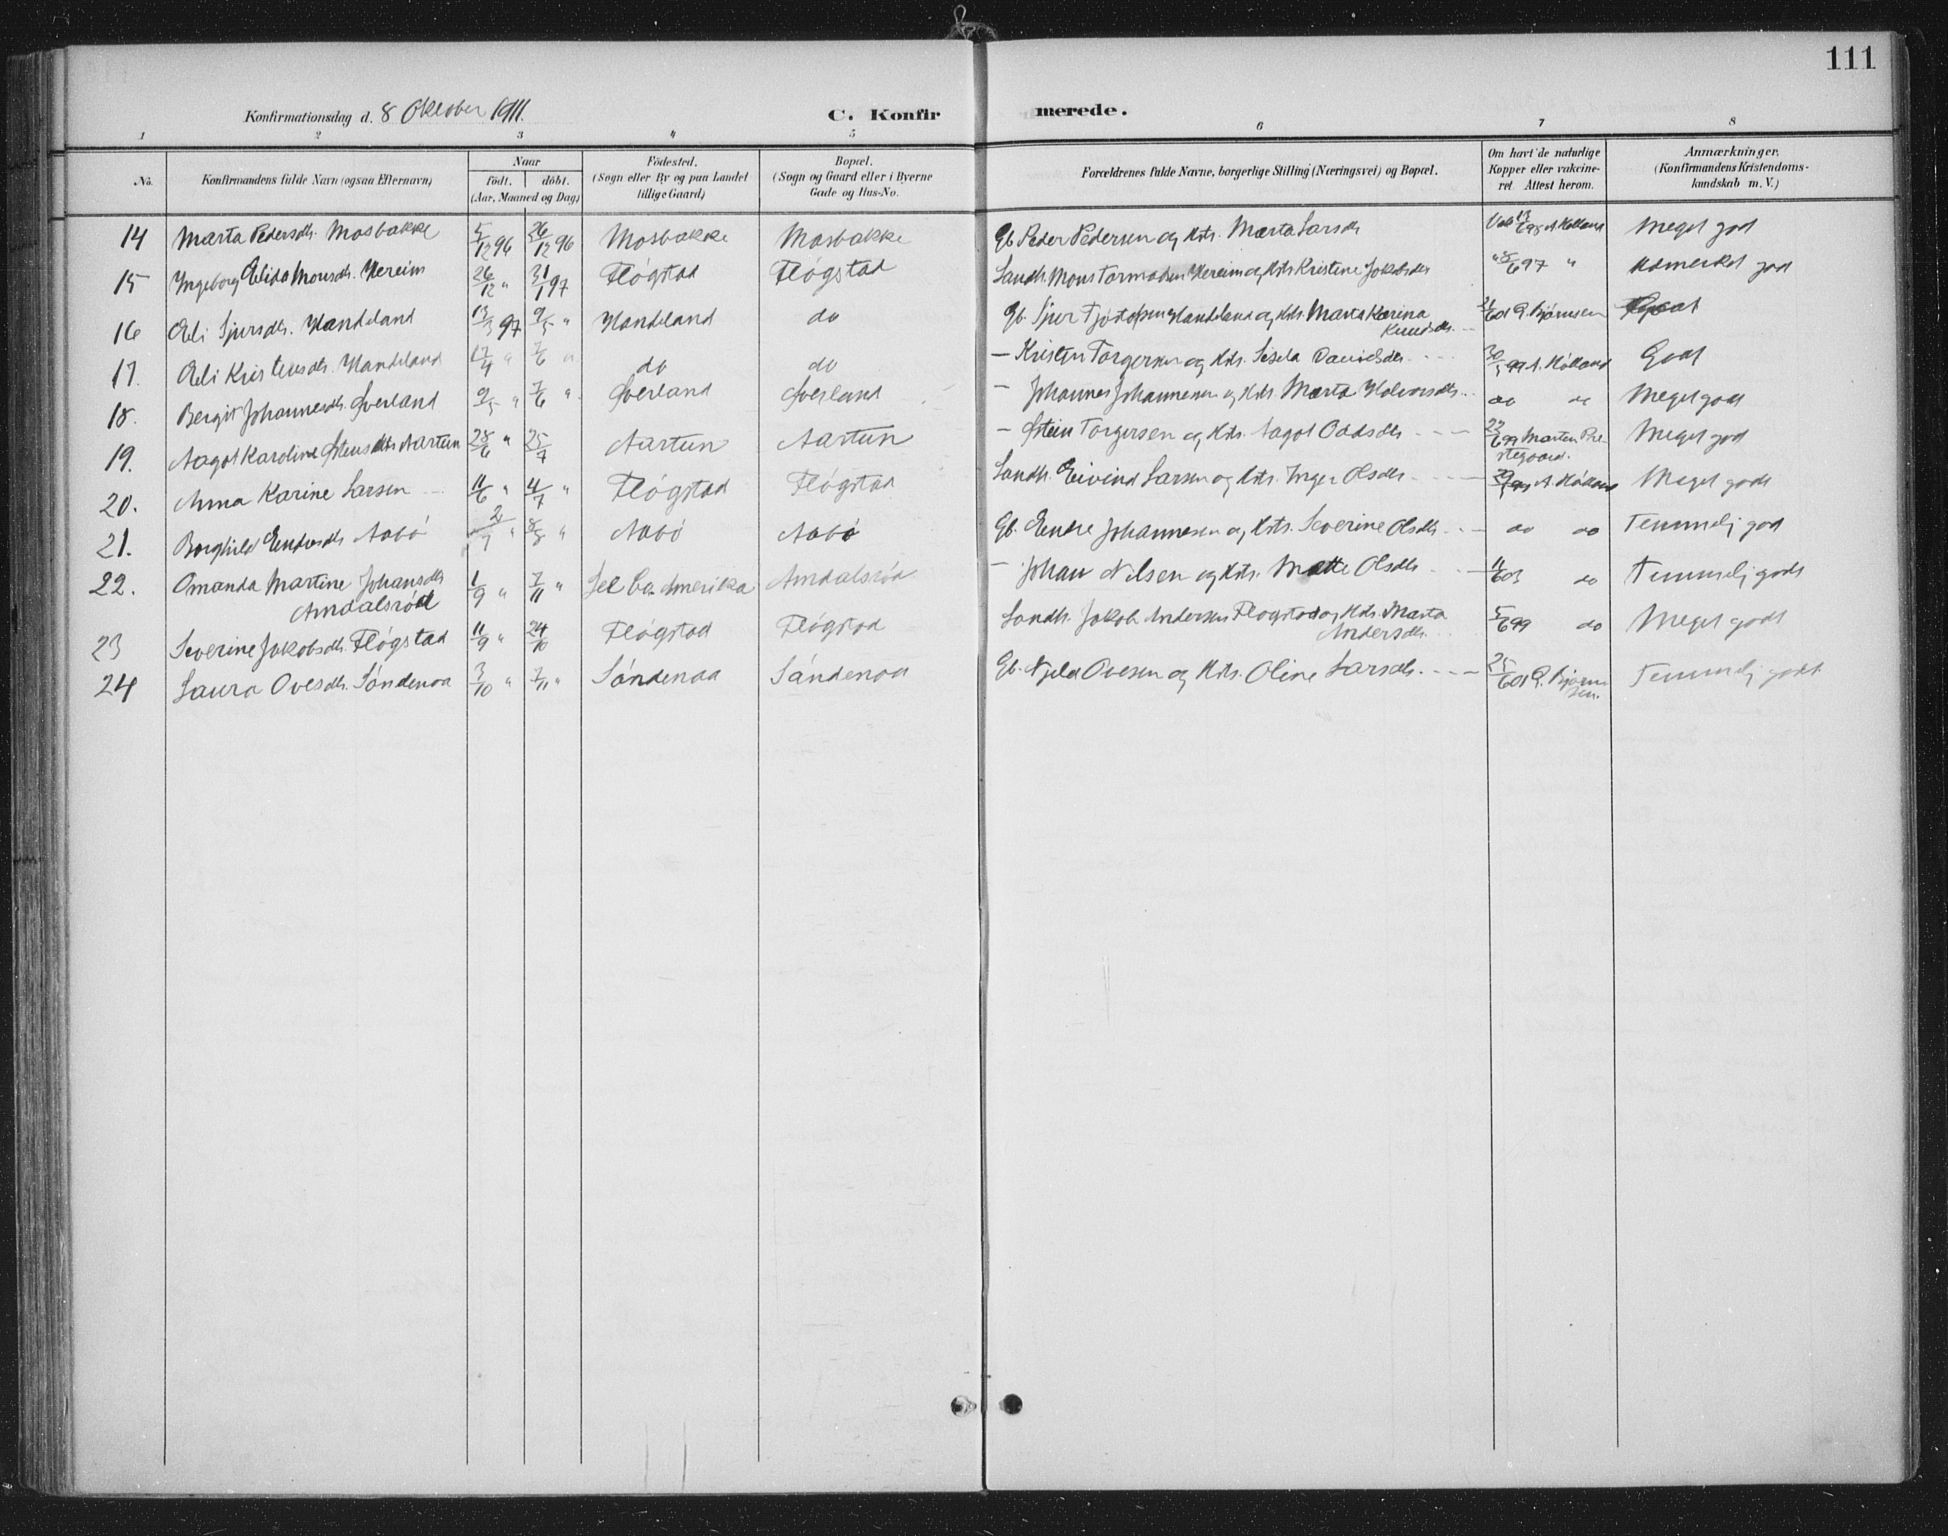 111
Konfirmationsdag d. 8 Oktober 1911.
C. Konfirmerede.
1 2 3 4 5 6 7 8
No.
Konfirmandens fulde Navn (ogsaa Efternavn)
Naar
født. døbt.
(Aar, Maaned og Dag)
Födested.
(Sogn eller By og paa Landet
tillige Gaard)
Bopæl.
(Sogn og Gaard eller i Byerne
Gade og Hus-No.
Forældrenes fulde Navne, borgerlige Stilling (Næringsvei) og Bopæl.
Om havt de naturlige
Kopper eller vakcine-
ret. Attest herom.
Anmærkninger.
(Konfirmandens Kristendoms-
kundskab m. V.)
14 Marta Pedersdtr. Mosbakke 5/12 96 26/12 96 Mosbakke Mosbakke Gb. Peder Pedersen og Kts. Marta Larsdtr Meget god
15 Ingeborg Elida Monsdtr. Hereim 26/12 " 31/1 97 Fløgstad Fløgstad Landh. Mons Tormodsen Hereim og Kts Kristine Jakobsdtr 97 " Udmerket god
16 Eli Sjursdtr. Handeland 13/3 97 9/5 " Handeland do Gb. Sjur Handeland og Kts. Marta Karina
Knudsdtr. 01 G. Bjørnsen
17. Eli Kristensdtr. Handeland 17/4 " 7/6 " do do - Kristen Torgersen og Kts. Sisela Davidsdtr. 30/5 99 A. Hølland Godt
18. Bergit Johannesdtr. Øverland 9/5 " 7/6 " Øverland Øverland - Johannes Johannesen og Kts. Marta Halvorsdtr. do do Meget godt
19. Aagot Karoline Steinsdtr Aartun 28/6 " 25/7 Aartun Aartun - Østein Torgersen og Kts. Aagot Oddsdtr 22/6 99 Marten Pre-
stegaard. Meget god
20. Anna Karine Larsen 11/6 " 4/7 " Fløgstad Fløgstad Landh. Eivind Larsen og Kts. Inger Olsdtr. A. Hølland Meget godt
21. Borghild Endresdtr Aabø 2/7 " 8/8 " Aabø Aabø Gb. Endre Johannesen og Kts. Severine Olsdtr. do do Temmelig god
22. Omanda Martine Johansdtr
Amdalsrød 1/9 " 7/11 " Amerika Amdalsrød - Johan Nilsen og Kts. Mette Olsdtr. 11/6 03 do Temmelig godt
23 Severine Jakobsdtr. Fløgstad 11/9 " 24/10 Fløgstad Fløgstad Landh. Jakob Andersen Fløgstad og Kts. Marta
Andersdtr. 5/6 99 do Meget godt
24 Laura Ovesdtr. Søndenaa 3/10 " 7/11 " Søndenaa Søndenaa Gb. Njeld Ovesen og Kts. Oline Larsdtr. 25/6 01 G. Bjørn-
sen. Temmelig godt